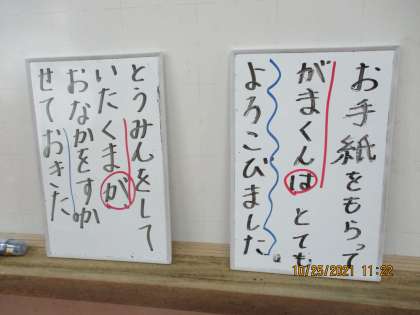 お手紙をもらって
がまくんはとても
よろこびました。
とうみんをして
いたくまが、
おなかをすか
せておきた
10/25/2021 11:22